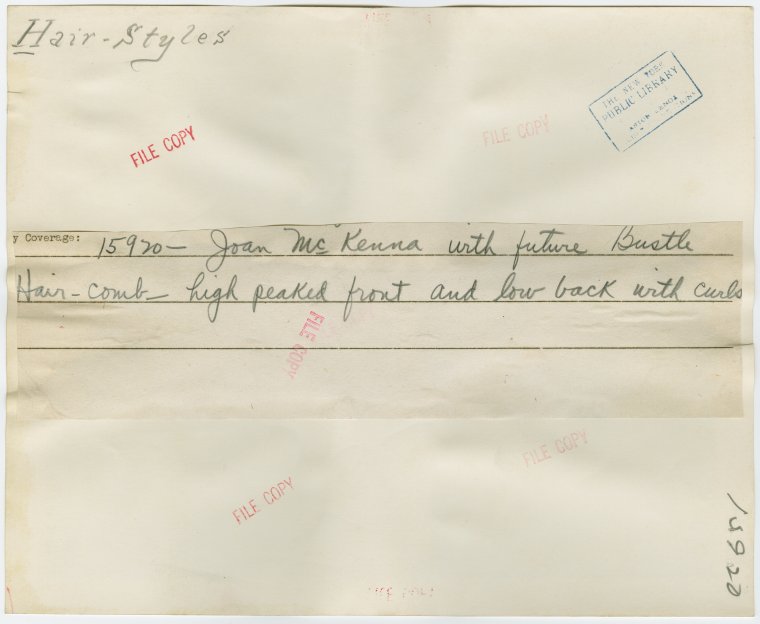 Hair-Styles
THE NEW YORK
PUBLIC LIBRARY
FILE COPY
FILE COPY
y Coverage: 15920— Joan McKenna with future Bustle
Hair-comb— high peaked front and low back with curls
FILE COPY
FILE COPY
FILE COPY
15922